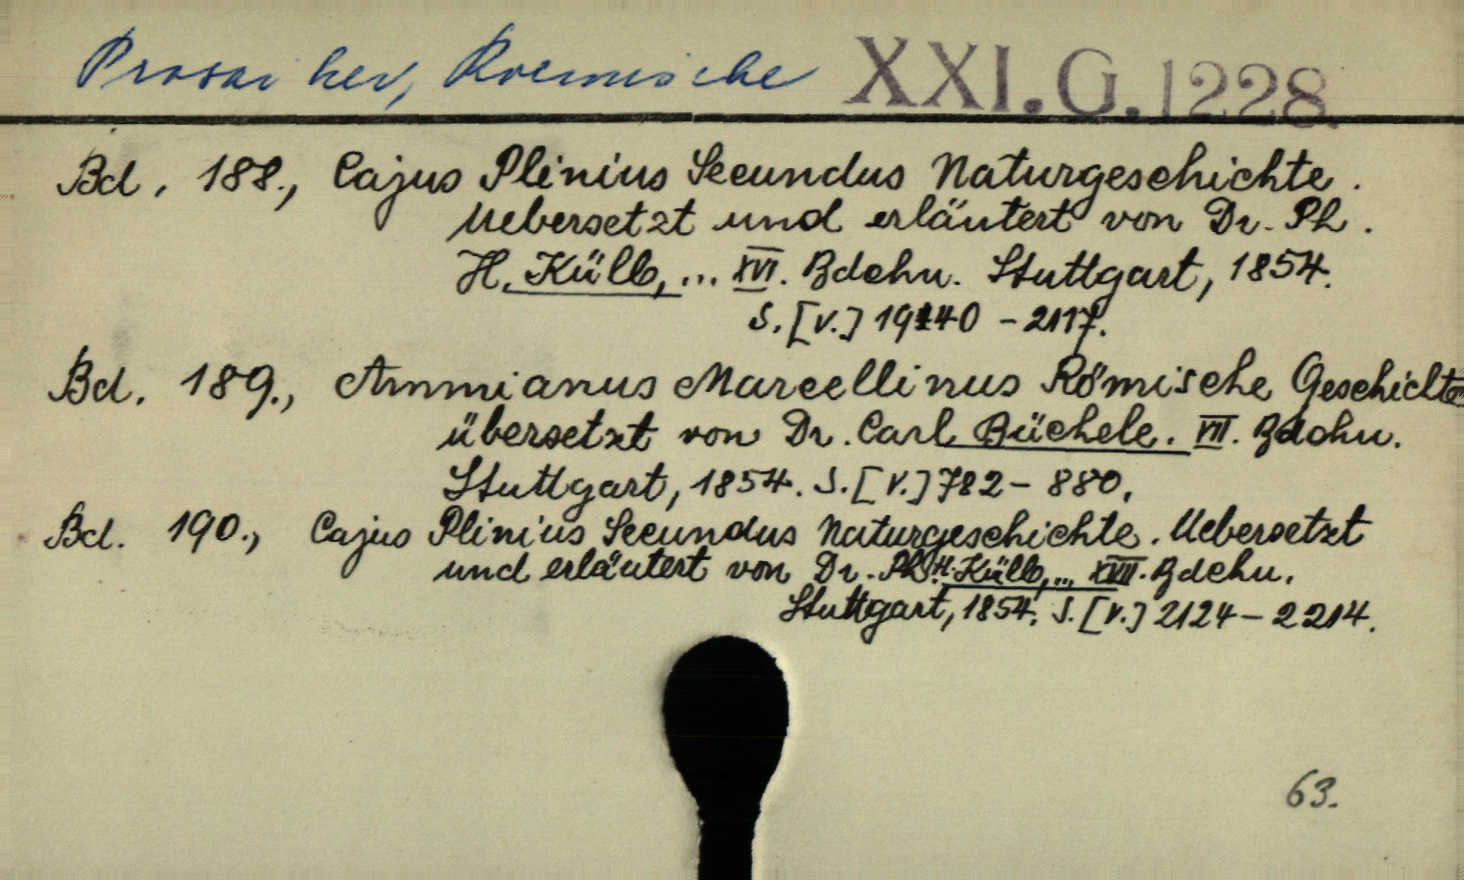 Prosaiker, Roemische XXI.G.1228.
Bd. 188., Cajus Plinius Secundus Naturgeschichte.
Uebersetzt und erläutert von Dr. Ph.
H. Külb, ... XVI. Bdchn. Stuttgart, 1854.
S. [V.] 1940 - 2117.
Bd. 189., Ammianus Marcellinus Römische Geschichte
übersetzt von Dr. Carl Büchele. VII. Bdchn.
Stuttgart, 1854. S. [V.] 782 - 880.
Bd. 190., Cajus Plinius Secundus Naturgeschichte. Uebersetzt
und erläutert von Dr. Ph. H. Külb, ... XVII. Bdchn.
Stuttgart, 1854. S. [V.] 2124 - 2214.
63.